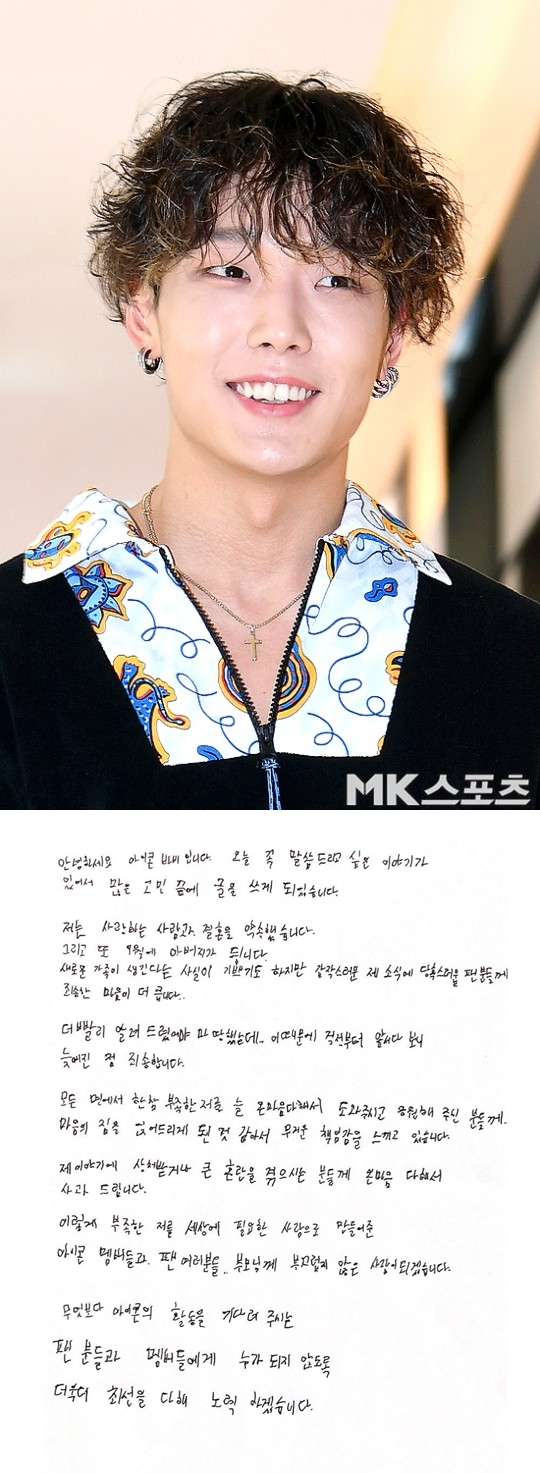 MK스포츠
안녕하세요 아이콘 바비 입니다. 오늘 꼭 말씀드리고 싶은 이야기가
있어서 많은 고민 끝에 글을 쓰게 되었습니다.
저는 사랑하는 사람과 결혼을 약속했습니다.
그리고 또 9월에 아버지가 됩니다.
새로운 가족이 생긴다는 사실이 기쁘기도 하지만 갑작스러운 제 소식에 당혹스러울 팬분들께
죄송한 마음이 더 큽니다..
더 빨리 알려 드렸어야 마땅했는데.. 이 때문에 걱정부터 앞서다 보니
늦어진 점 죄송합니다.
모든 면에서 한참 부족한 저를 늘 온마음다해서 도와주시고 응원해 주신 분들께.
마음의 짐을 얹어드리게 된 것 같아서 무거운 책임감을 느끼고 있습니다.
제이야기에 상처받거나 큰 혼란을 겪으시는 분들께 온마음 다해서
사과 드립니다.
이렇게 부족한 저를 세상에 필요한 사람으로 만들어준
아이콘 멤버들과. 팬 여러분들.. 부모님께 부끄럽지 않은 사람이되겠습니다.
무엇보다 아이콘의 활동을 기다려 주시는
팬 분들과 멤버들에게 누가 되지 않도록
더욱더 최선을 다해 노력 하겠습니다.